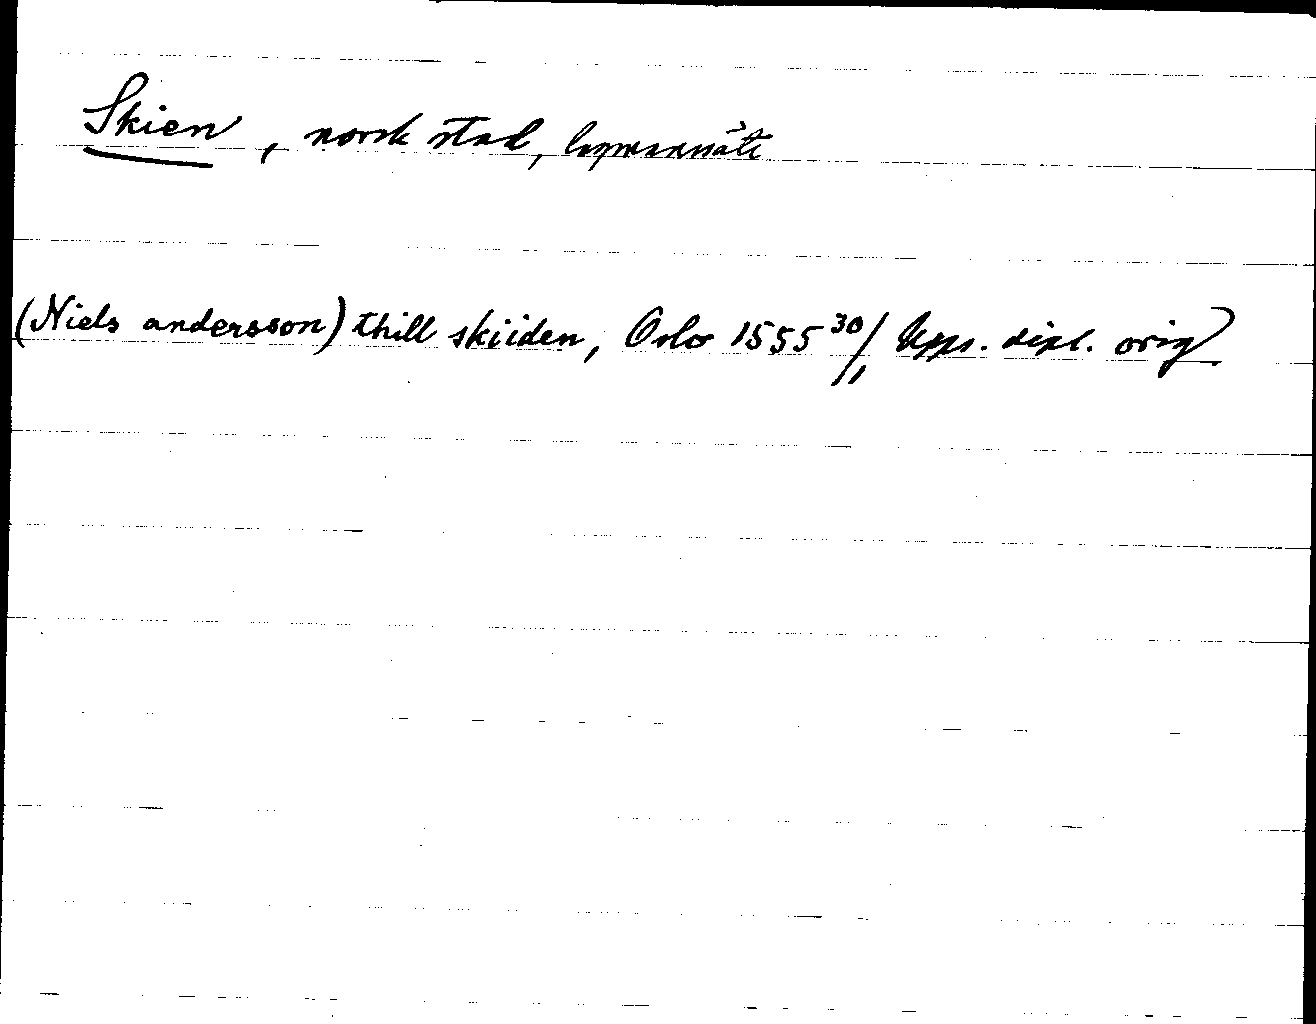 Skien, norsk stad, lagmanssäte
(Niels andersson) thill skiiden, Oslo 1555 30/11 Upps. dipl. orig